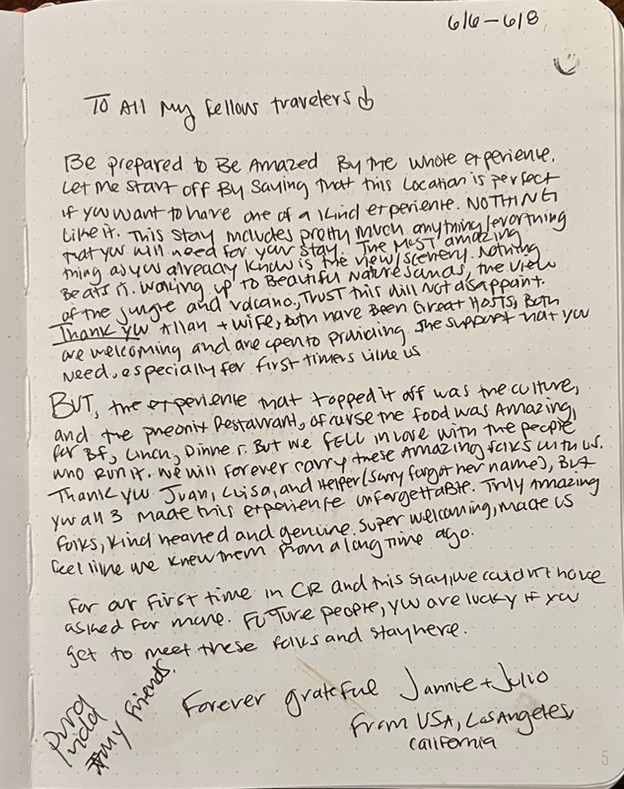 6/6-6/8
To All My fellow travelers
Be prepared to Be Amazed By the whole experience.
Let me start off By Saying that this Location is perfect
if you want to have one of a kind experience. NOTHING
Like it. This stay includes pretty much anything/everthing
that you will need for your stay. The MOST amazing
thing as you already know is the view/scenery. Nothing
Beats it. Waking up to Beautiful Nature sounds, the view
of the jungle and Volcano, Trust this will Not disappoint.
Thank you Allan + wife, both have Been Great Hosts, Both
are welcoming and are open to providing the support that you
need, especially for first timers like us
BUT, the experience that topped it off was the culture,
and the pheonix Restaurant, of curse the food was Amazing,
for BF, Lunch, Dinner. But we FELL in love with the people
who Run it. We will forever carry these Amazing folks with us.
Thank you Juan, Luisa, and Helper (Sorry forgot her name), But
you all 3 made this experience unforgettable. Truly Amazing
folks, kind hearted and genuine. Super welcoming, made us
feel like we knew them from a long time ago.
For our first time in CR and this stay, we couldn't have
asked for more. Future people, you are lucky if you
get to meet these folks and stay here.
Forever grateful Jannie + Julio
From USA, Los Angeles,
California
Pura
Vida
my friends
5